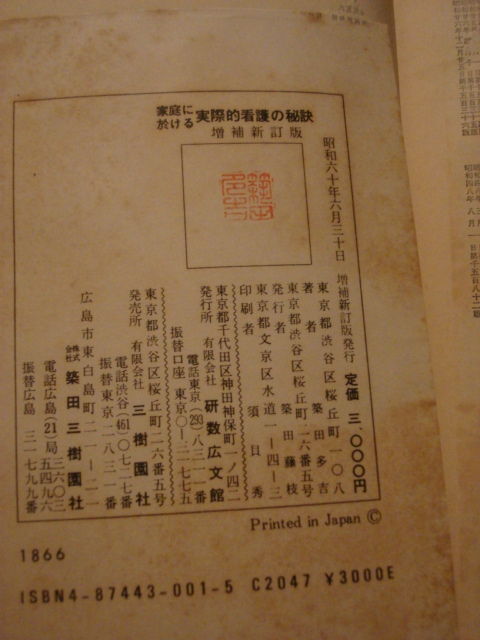 家庭に於ける 実際的看護の秘訣
増補新訂版
昭和六十年六月三十日 増補新訂版発行
定価 三、〇〇〇円
東京都渋谷区桜丘町一〇八
著者 築田多吉
東京都渋谷区桜丘町二六番五号
発行者 築田藤枝
東京都文京区水道一ー四ー三
印刷者 須貝秀
東京都千代田区神田神保町一ノ四二
発行所 有限会社 研数広文館
電話東京(293)八三一一番
振替口座 東京〇ー二七七五
東京都渋谷区桜丘町二六番五号
発売所 有限会社 三樹園社
電話渋谷(461)〇七一七番
振替東京二八三一番
広島市東白島町二一ー二一
株式会社 築田三樹園社
電話広島(21)局 三六〇三 五四九六
振替広島 三一七九九番
Printed in Japan ©
1866
ISBN4-87443-001-5 C2047 ¥3000E